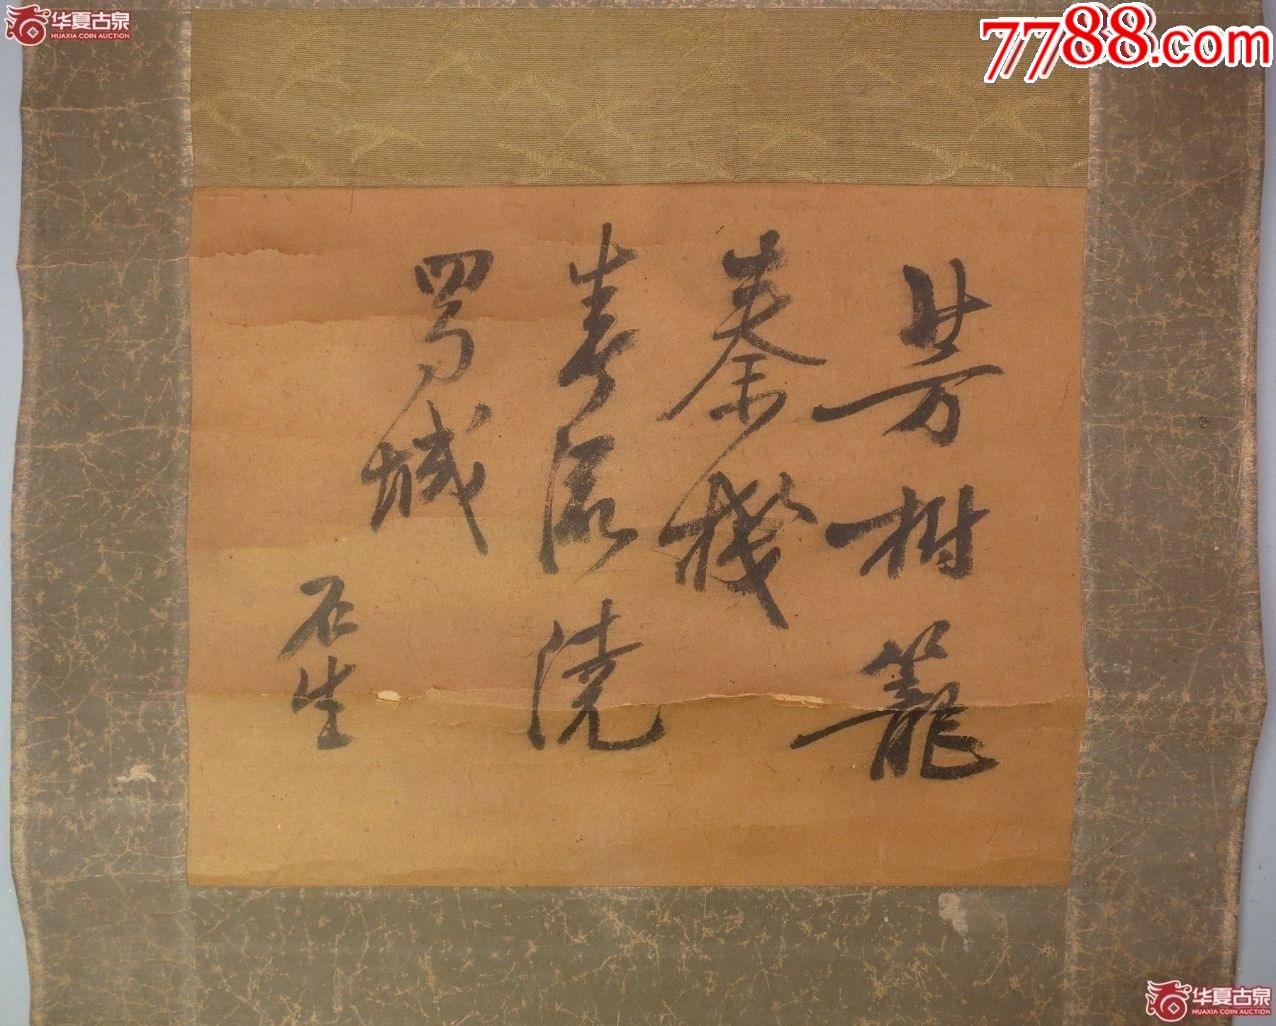 华夏古泉
HUAXIA COIN AUCTION
7788.com
芳樹籠
秦棧
春流遶
蜀城
石生
华夏古泉
HUAXIA COIN AUCTION